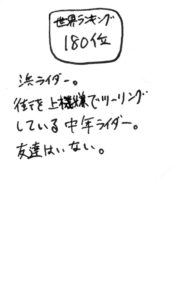 世界ランキング
180位
浜ライダー。
街を上機嫌でツーリング
している中年ライダー。
友達はいない。